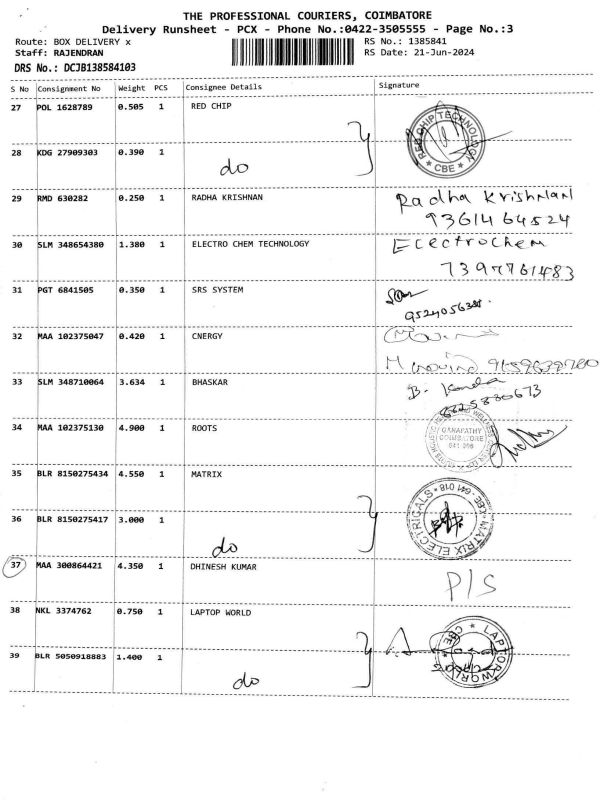 THE PROFESSIONAL COURIERS, COIMBATORE
Delivery Runsheet - PCX - Phone No.:0422-3505555 - Page No.:3
Route: BOX DELIVERY x RS No.: 1385841
Staff: RAJENDRAN RS Date: 21-Jun-2024
DRS No.: DCJB138584103
S No Consignment No Weight PCS Consignee Details Signature
27 POL 1628789 0.505 1 RED CHIP
RED CHIP TECHNOLOGY * CBE *
28 KDG 27909303 0.390 1 do
29 RMD 630282 0.250 1 RADHA KRISHNAN Radha Krishnan
9361464524
30 SLM 348654380 1.380 1 ELECTRO CHEM TECHNOLOGY Electrochem
7397761483
31 PGT 6841505 0.350 1 SRS SYSTEM
32 MAA 102375047 0.420 1 CNERGY
33 SLM 348710064 3.634 1 BHASKAR B.
34 MAA 102375130 4.900 1 ROOTS
GANAPATHY
COIMBATORE
35 BLR 8150275434 4.550 1 MATRIX
MATRIX ELECTRICALS * 641 018
36 BLR 8150275417 3.000 1 do
37 MAA 300864421 4.350 1 DHINESH KUMAR P/S
38 NKL 3374762 0.750 1 LAPTOP WORLD
LAPTOP WORLD * CBE
39 BLR 5050918883 1.400 1 do